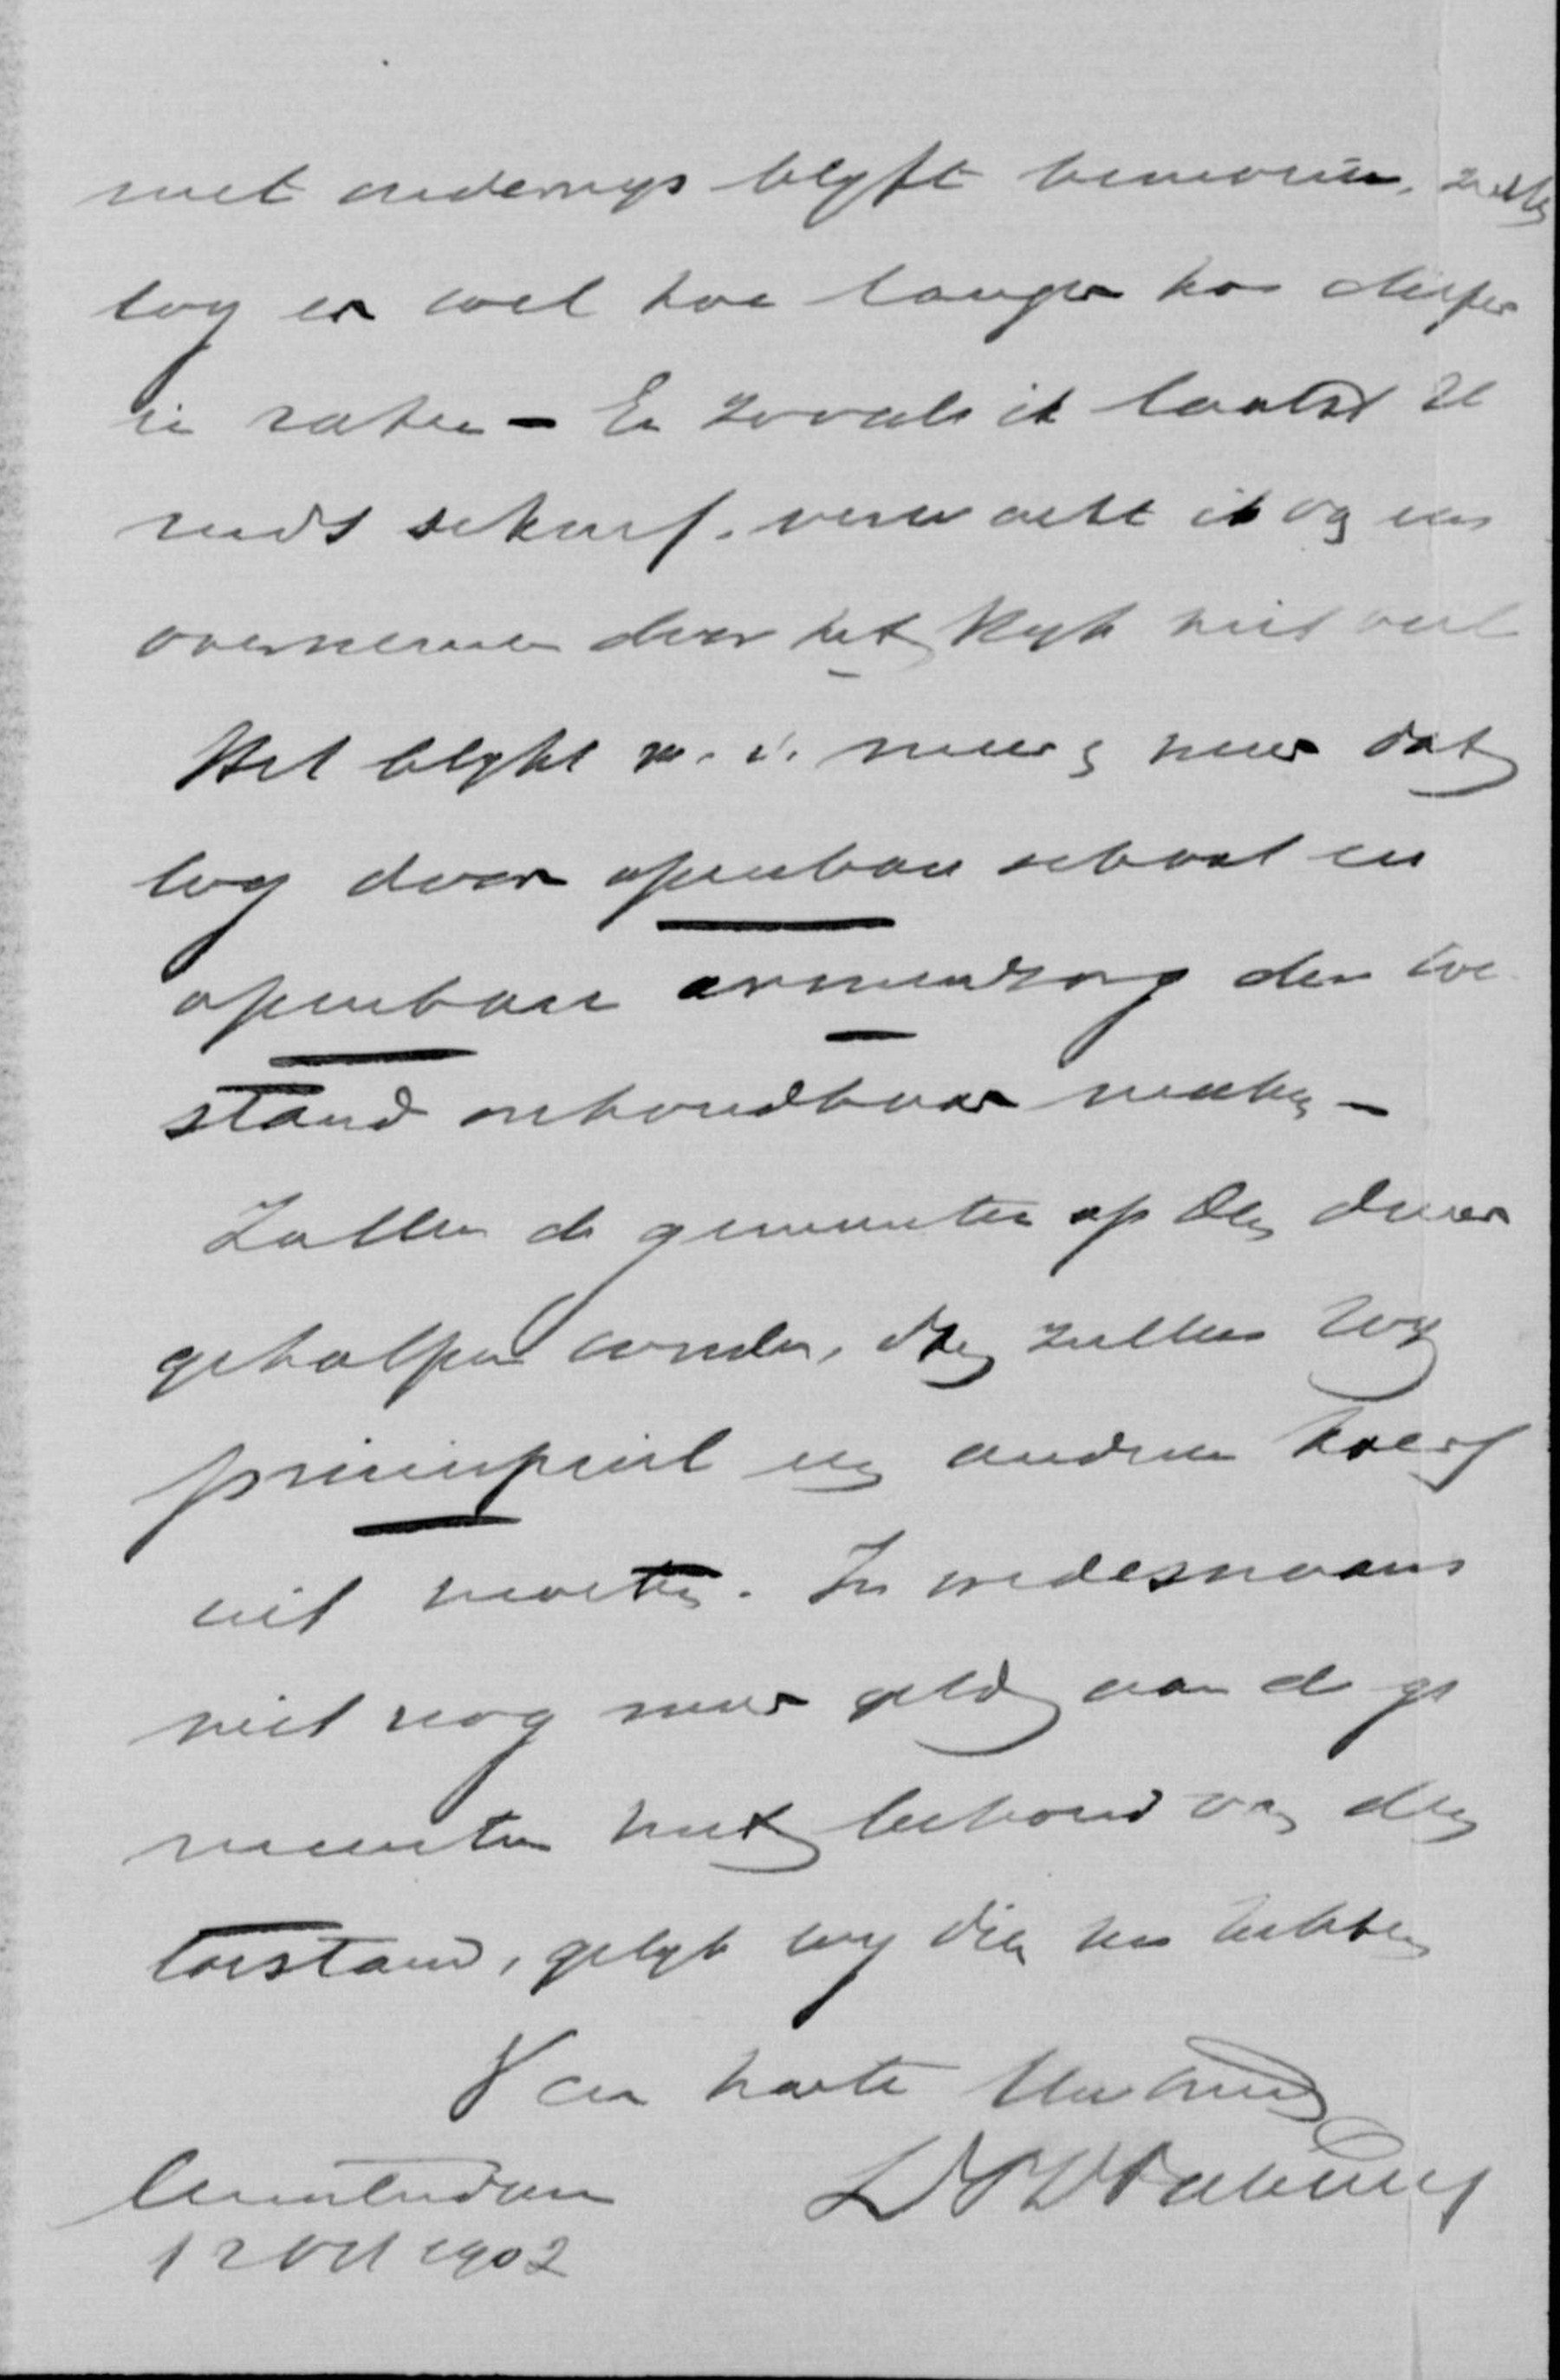 met onderwijs blijft bemoeien, zullen
wij er wel hoe langer hoe dieper
in raken – En zooals ik laatst U
reeds schreef, verwacht ik van een
overnemen door het Rijk niet veel
Het blijkt m. i. meer en meer dat
wij door openbare school en
openbare armenzorg den toe
stand onhoudbaar maken –
Zullen de gemeenten op den duur
geholpen worden, dan zullen wij
principieel een anderen koers
uit moeten. In vredesnaam
niet nog meer geld aan de ge
meenten met behoud van den
toestand, gelijk wij dien nu hebben
Van harte
Amsterdam
12 Oct 1902